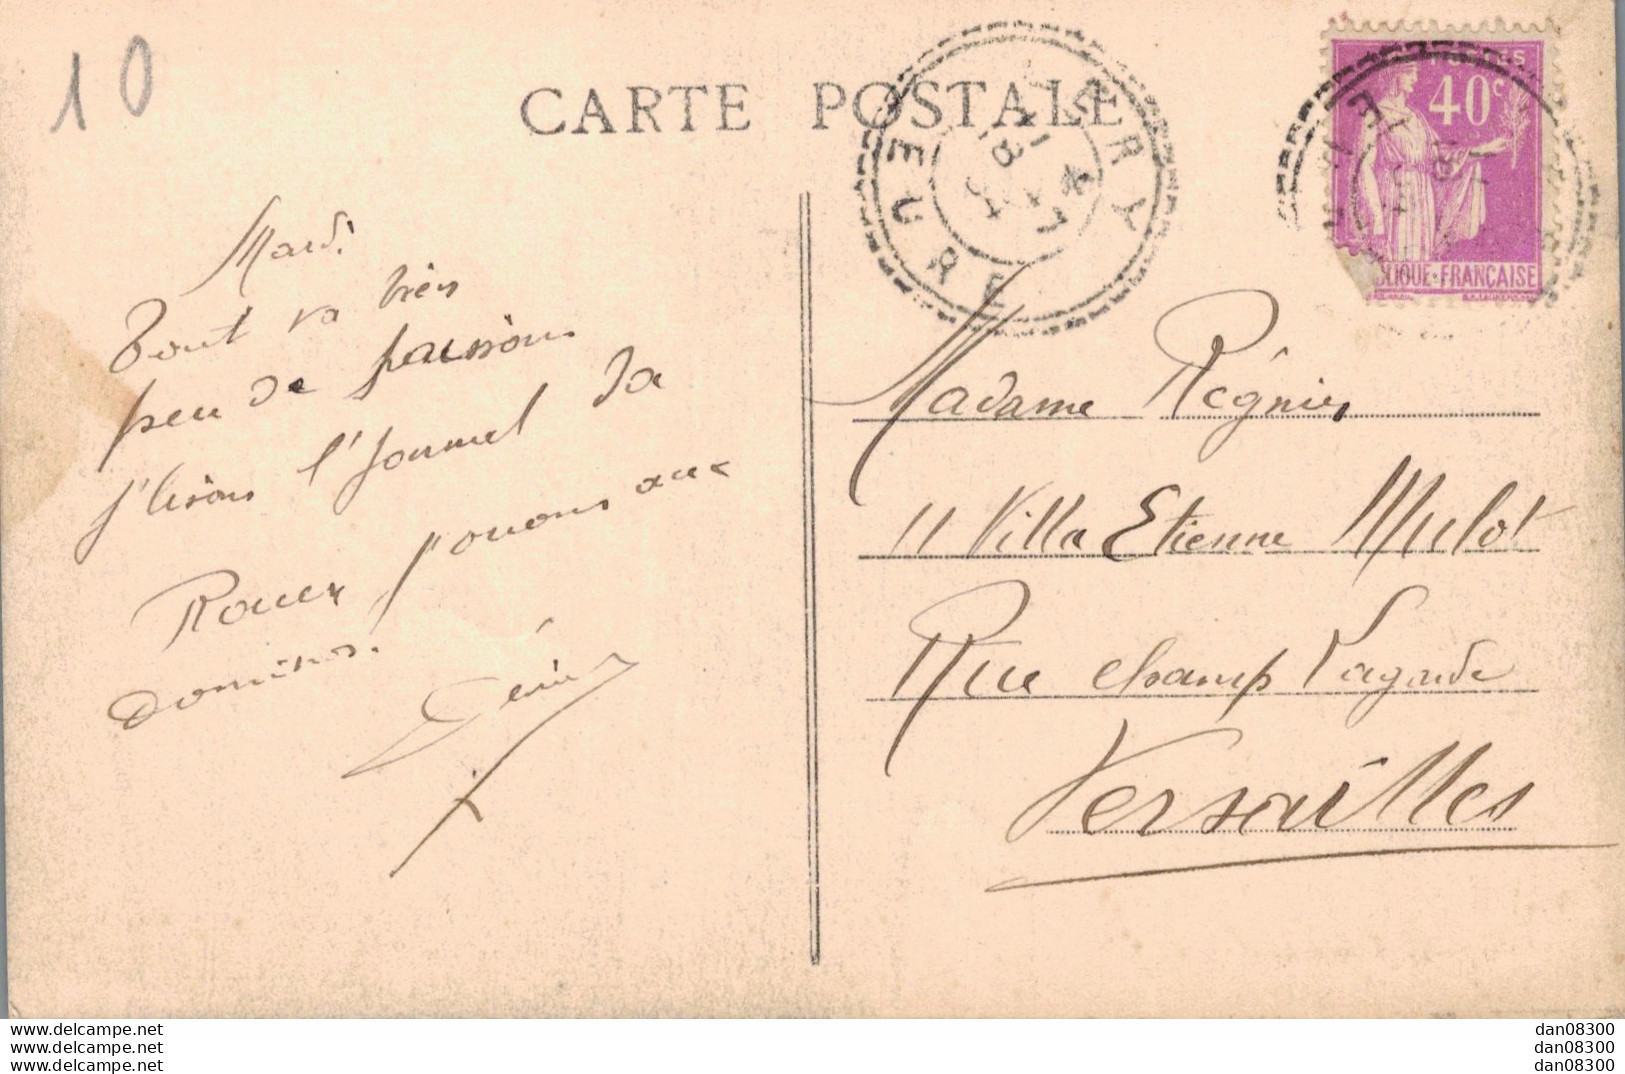 10
CARTE POSTALE
ERY
EURE
40c
BLIQUE·FRANÇAISE
Mardi
Tout va bien
peu de poissons
j'lisons l'Journal Da
Rouen jouons aux
dominos.
Madame Régnier
11 Villa Etienne Mulot
Rue champ Lagarde
Versailles
© delcampe.net
© delcampe.net
© delcampe.net
dan08300
dan08300
dan08300